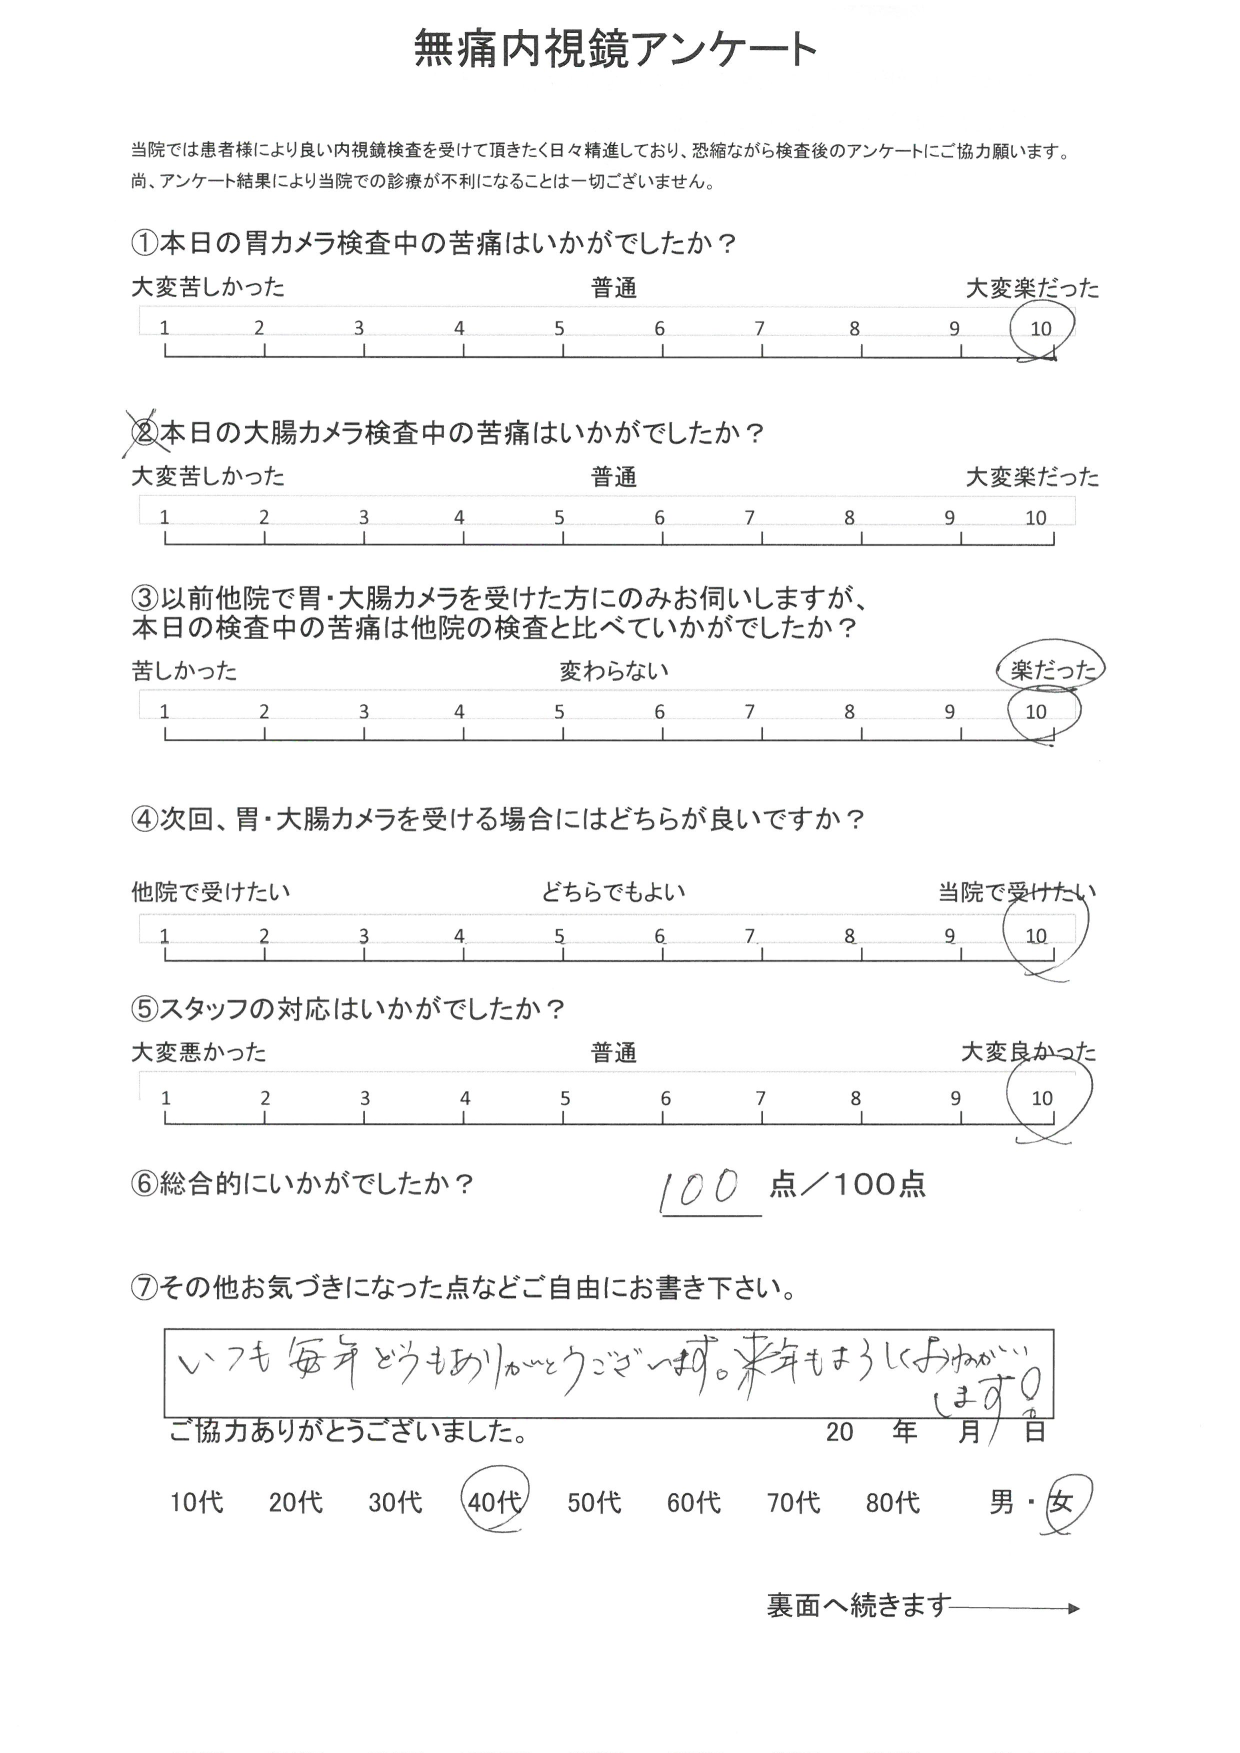 無痛内視鏡アンケート
当院では患者様により良い内視鏡検査を受けて頂きたく日々精進しており、恐縮ながら検査後のアンケートにご協力願います。
尚、アンケート結果により当院での診療が不利になることは一切ございません。
①本日の胃カメラ検査中の苦痛はいかがでしたか？
大変苦しかった 普通 大変楽だった
1 2 3 4 5 6 7 8 9 10
②本日の大腸カメラ検査中の苦痛はいかがでしたか？
大変苦しかった 普通 大変楽だった
1 2 3 4 5 6 7 8 9 10
③以前他院で胃・大腸カメラを受けた方にのみお伺いしますが、
本日の検査中の苦痛は他院の検査と比べていかがでしたか？
苦しかった 変わらない 楽だった
1 2 3 4 5 6 7 8 9 10
④次回、胃・大腸カメラを受ける場合にはどちらが良いですか？
他院で受けたい どちらでもよい 当院で受けたい
1 2 3 4 5 6 7 8 9 10
⑤スタッフの対応はいかがでしたか？
大変悪かった 普通 大変良かった
1 2 3 4 5 6 7 8 9 10
⑥総合的にいかがでしたか？ 100 点／100点
⑦その他お気づきになった点などご自由にお書き下さい。
いつも毎年どうもありがとうございます。来年もよろしくおねがい
します!
ご協力ありがとうございました。 20 年 月 日
10代 20代 30代 40代 50代 60代 70代 80代 男・女
裏面へ続きます